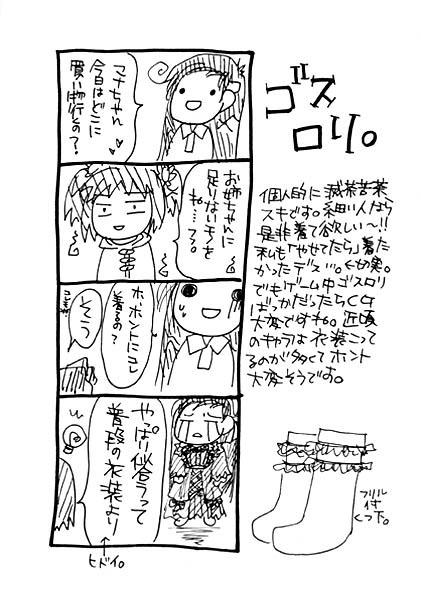 ゴスロリ。
マナちゃん
今日はどこに
買い物行くの？
お姉ちゃんに
足りないモノを
ね…フフ。
ホホントにコレ
着るの？
そう
やっぱり似合うって
普段の衣装より
ヒドイ。
個人的に滅茶苦茶
スキです。細い人なら
是非着て欲しい〜!!
私も「やせてたら」着た
かったデス…。←切実。
でもゲーム中ゴスロリ
ばっかだったらCG
大変ですね。近頃
のキャラは衣装こって
るのが多くてホント
大変そうです。
フリル
付
くつ下。